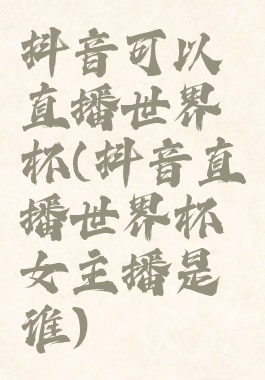 抖音可以
直播世界
杯(抖音直
播世界杯
女主播是
谁)